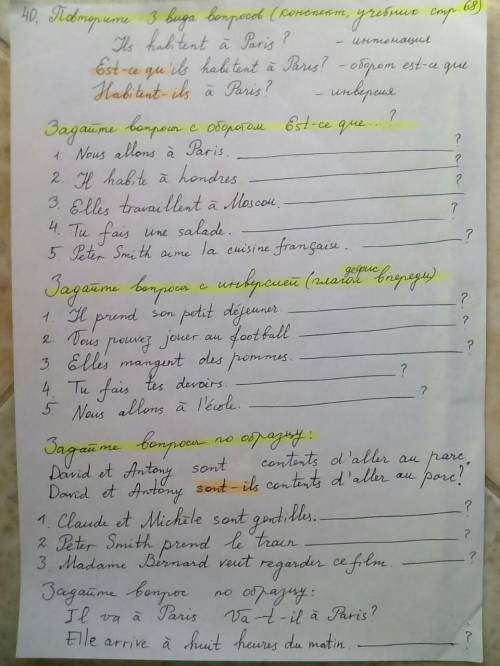 40. Повторите 3 вида вопросов (конспект, учебник стр 68)
Ils habitent à Paris? - интонация
Est-ce qu'ils habitent à Paris? - оборот est-ce que
Habitent-ils à Paris? - инверсия
Задайте вопросы с оборотом Est-ce que...?
1. Nous allons à Paris. ?
2. Il habite à Londres ?
3. Elles travaillent à Moscou. ?
4. Tu fais une salade. ?
5. Peter Smith aime la cuisine française. ?
дефис
Задайте вопросы с инверсией (глагол впереди)
1. Il prend son petit déjeuner ?
2. Vous pouvez jouer au football ?
3. Elles mangent des pommes. ?
4. Tu fais tes devoirs. ?
5. Nous allons à l'école. ?
Задайте вопросы по образцу:
David et Antony sont contents d'aller au parc.
David et Antony sont-ils contents d'aller au parc?
1. Claude et Michèle sont gentilles. ?
2 Peter Smith prend le train ?
3 Madame Bernard veut regarder ce film. ?
Задайте вопрос по образцу:
Il va à Paris Va-t-il à Paris?
Elle arrive à huit heures du matin. ?